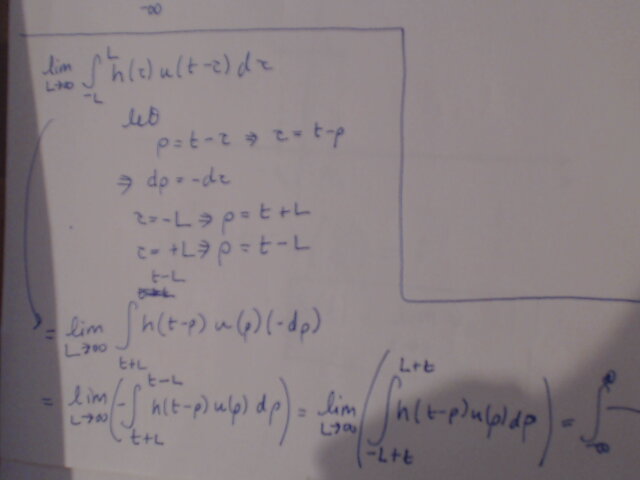 -∞
lim L→∞ ∫_{-L}^{L} h(τ) u(t-τ) dτ
let
ρ = t-τ ⇒ τ = t-ρ
⇒ dρ = -dτ
τ = -L ⇒ ρ = t+L
τ = +L ⇒ ρ = t-L
= lim L→∞ ∫_{t+L}^{t-L} h(t-ρ) u(ρ) (-dρ)
= lim L→∞ ( -∫_{t+L}^{t-L} h(t-ρ) u(ρ) dρ ) = lim L→∞ ( ∫_{-L+t}^{L+t} h(t-ρ) u(ρ) dρ ) = ∫_{-∞}^{∞}